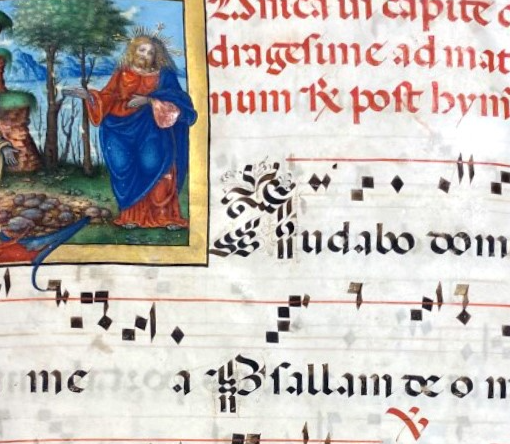 Dnica in capite q
dragesime ad mat
num ℟ post hym
Audabo dom
me a Psallam de o m
℣